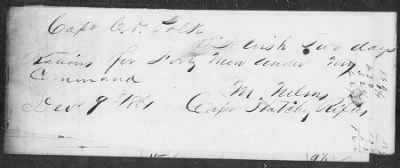 Capt C. T. Polk
Will issue Two days
Rations for Forty Men under my
Command
M. Nelms
Dec 9th 1861 Capt Natchez Rifles